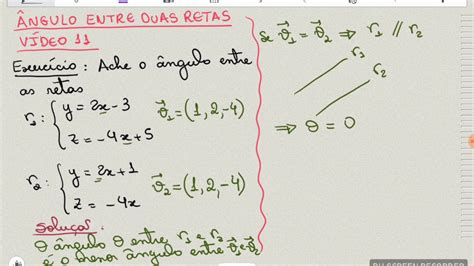 ÂNGULO ENTRE DUAS RETAS
VÍDEO 11
Exercício: Ache o ângulo entre
as retas
r₁: { y = 2x - 3
z = -4x + 5
v⃗₁ = (1, 2, -4)
r₂: { y = 2x + 1
z = -4x
v⃗₂ = (1, 2, -4)
Solução:
θ ângulo θ entre r₁ e r₂
é o menor ângulo entre v⃗₁ e v⃗₂
Se v⃗₁ = v⃗₂ ⇒ r₁ // r₂
r₁
r₂
⇒ θ = 0
SCREEN RECORDER